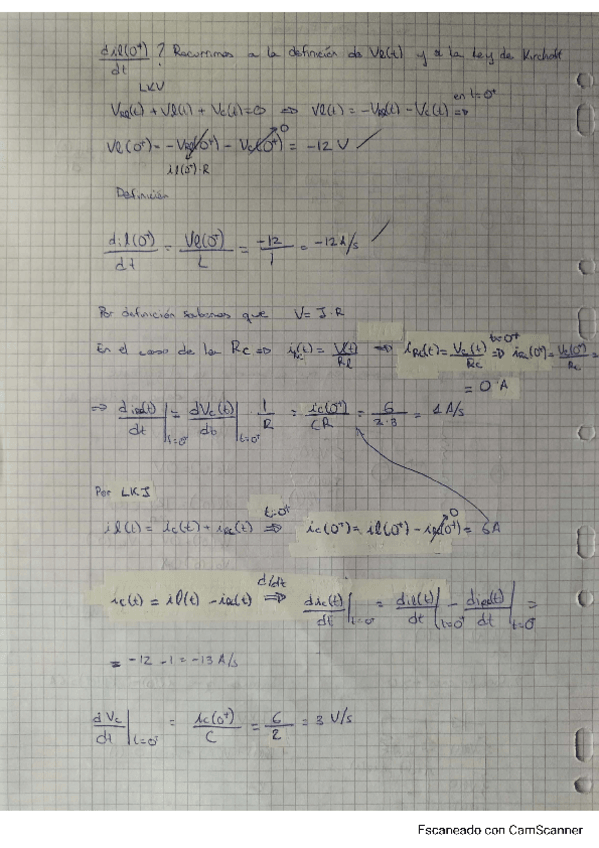 dil(0⁺)/dt ? Recurrimos a la definición de Vl(t) y a la Ley de Kirchoff
LKV
VRl(t) + Vl(t) + Vc(t) = 0 ⇒ Vl(t) = -VRl(t) - Vc(t) ⇒ en t=0⁺
Vl(0⁺) = -VRl(0⁺) - Vc(0⁺) = -12 V
0
il(0⁺)·R
Definición
dil(0⁺)/dt = Vl(0⁺)/L = -12/1 = -12 A/s
Por definición sabemos que V = I·R
En el caso de la Rc ⇒ iRc(t) = V(t)/Rl ⇒ iRc(t) = Vc(t)/Rc t=0⁺ ⇒ iRc(0⁺) = Vc(0⁺)/Rc =
= 0 A
⇒ diRc(t)/dt |t=0⁺ = dVc(t)/dt |t=0⁺ 1/R = ic(0⁺)/CR = 6/2·3 = 1 A/s
Por LKI
il(t) = ic(t) + iRc(t) t=0⁺ ⇒ ic(0⁺) = il(0⁺) - iRc(0⁺) = 6A
0
ic(t) = il(t) - iRc(t) d/dt ⇒ dic(t)/dt |t=0⁺ = dil(t)/dt |t=0⁺ - diRc(t)/dt |t=0⁺ =
= -12 - 1 = -13 A/s
dVc/dt |t=0⁺ = ic(0⁺)/C = 6/2 = 3 V/s
Escaneado con CamScanner